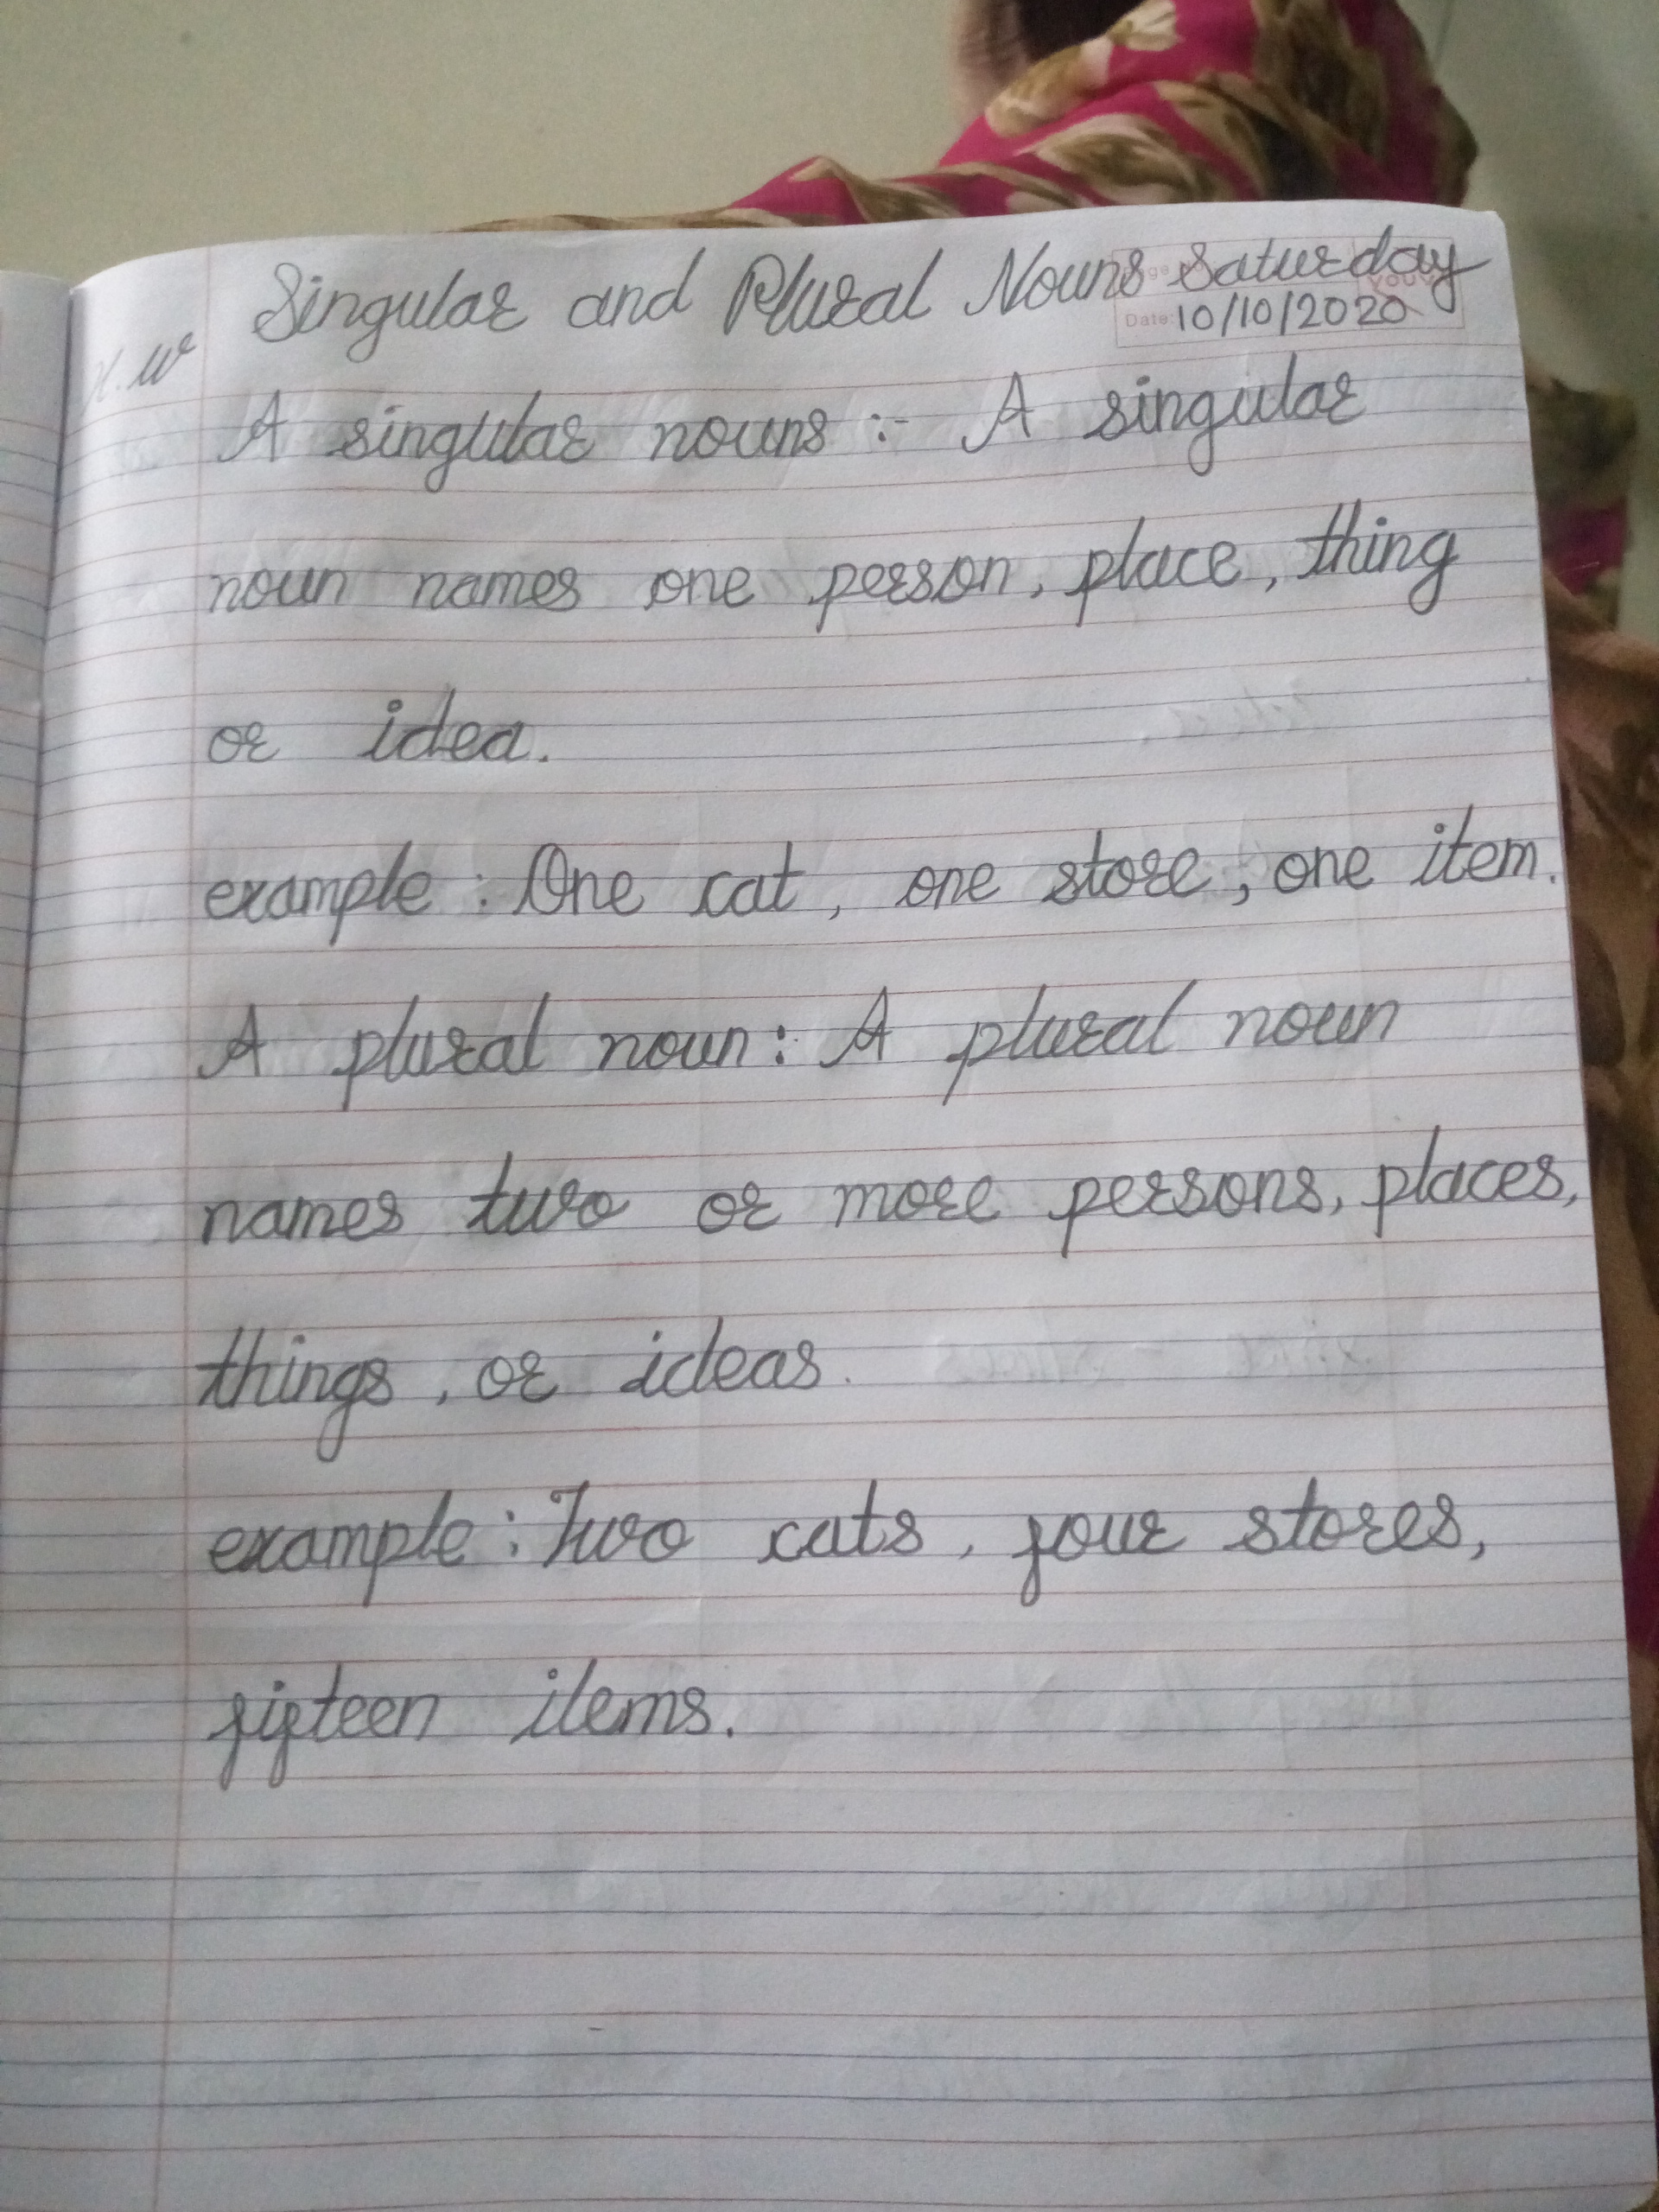 Singular and Plural Nouns Saturday
Date: 10/10/2020
H.W
A singular nouns :- A singular
noun names one person, place, thing
or idea.
example : One cat, one store, one item.
A plural noun : A plural noun
names two or more persons, places,
things, or ideas.
example : Two cats, four stores,
fifteen items.